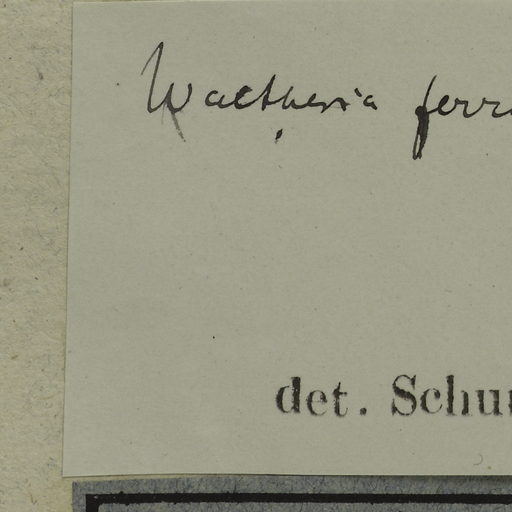 Waltheria ferr
det. Schu